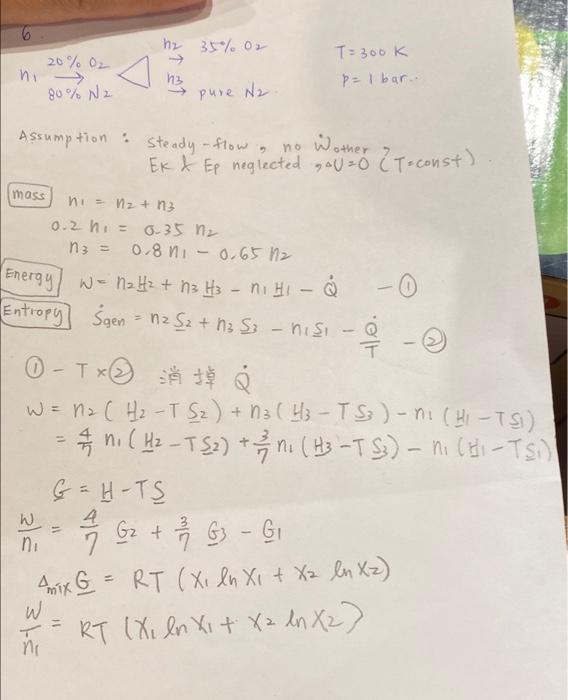 6.
n1 20% O2 → 80% N2 n2 → 35% O2 T = 300 K
n3 → pure N2. P = 1 bar..
Assumption : steady-flow, no Ẇother,
EK & Ep neglected, ΔU=0 (T=const).
mass n1 = n2 + n3
0.2 n1 = 0.35 n2
n3 = 0.8 n1 - 0.65 n2
Energy W = n2H2 + n3 H3 - n1 H1 - Q̇ - ①
Entropy Ṡgen = n2 S2 + n3 S3 - n1S1 - Q̇/T - ②
① - T×② 消掉 Q̇
W = n2 ( H2 - T S2 ) + n3 ( H3 - T S3 ) - n1 ( H1 - T S1 )
= 4/7 n1 ( H2 - T S2 ) + 3/7 n1 ( H3 - T S3 ) - n1 ( H1 - T S1 )
G = H - TS
W/n1 = 4/7 G2 + 3/7 G3 - G1
Δmix G = RT ( X1 ln X1 + X2 ln X2 )
W/n1 = RT ( X1 ln X1 + X2 ln X2 )